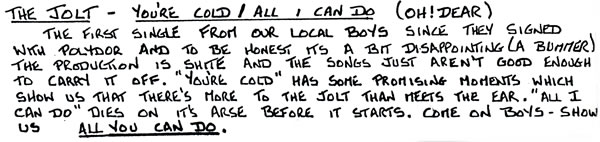 THE JOLT - YOU'RE COLD / ALL I CAN DO (OH! DEAR)
THE FIRST SINGLE FROM OUR LOCAL BOYS SINCE THEY SIGNED
WITH POLYDOR AND TO BE HONEST ITS A BIT DISAPPOINTING (A BUMMER)
THE PRODUCTION IS SHITE AND THE SONGS JUST AREN'T GOOD ENOUGH
TO CARRY IT OFF. "YOU'RE COLD" HAS SOME PROMISING MOMENTS WHICH
SHOW US THAT THERE'S MORE TO THE JOLT THAN MEETS THE EAR. "ALL I
CAN DO" DIES ON IT'S ARSE BEFORE IT STARTS. COME ON BOYS - SHOW
US ALL YOU CAN DO.